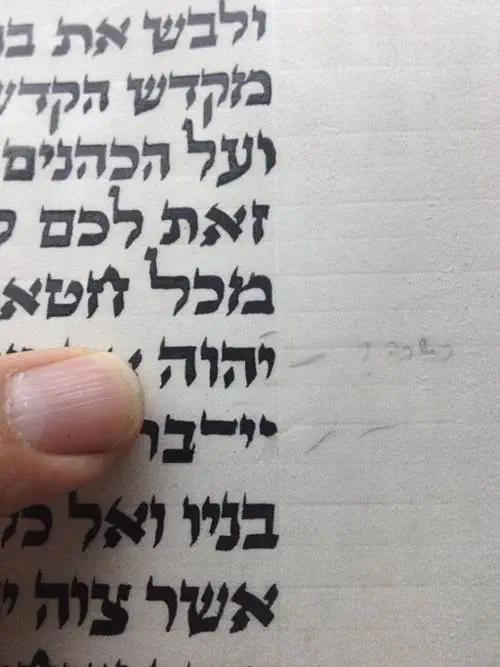 ולבש את
מקדש הקדש
ועל הכהנים
זאת לכם
מכל
יהוה
וידבר
בניו ואל כל
אשר צוה